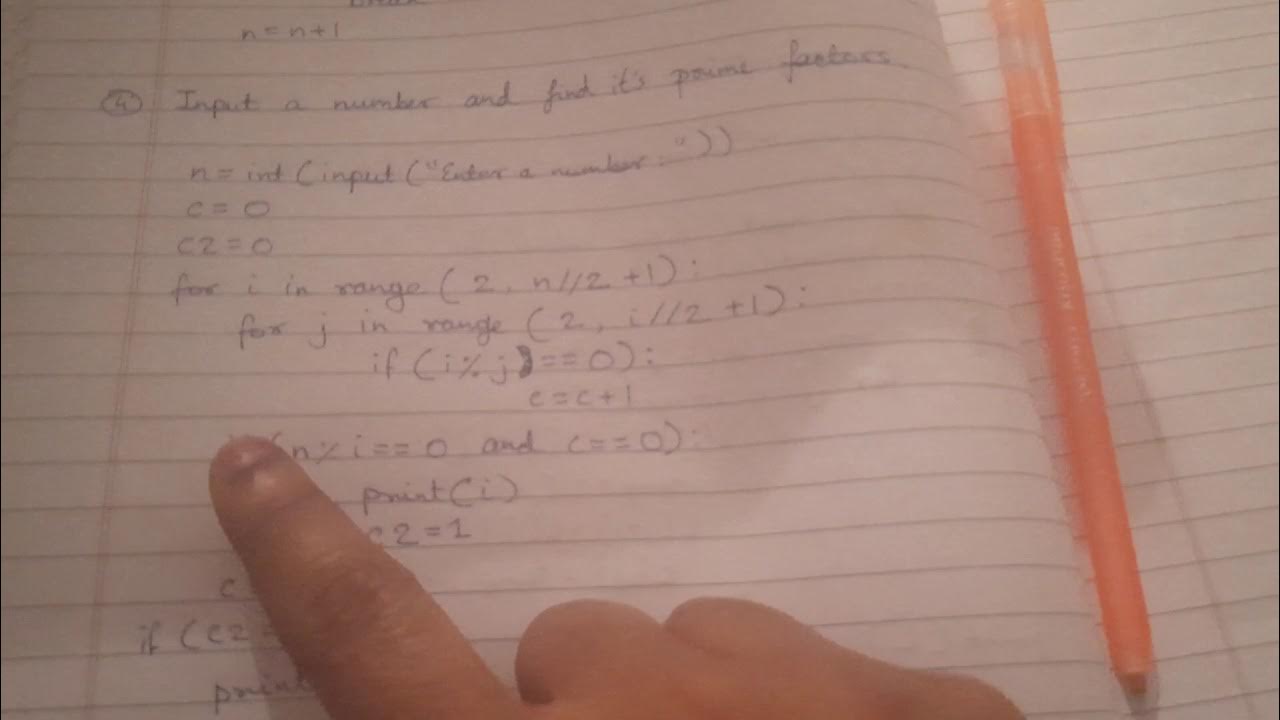 n = n+1
4 Input a number and find it's prime factors.
n = int (input ("Enter a number : "))
c = 0
c2 = 0
for i in range (2, n//2 +1) :
for j in range (2, i//2 +1) :
if (i % j == 0) :
c = c + 1
(n % i == 0 and c == 0) :
print(i)
c2 = 1
c
if (c2 =
print